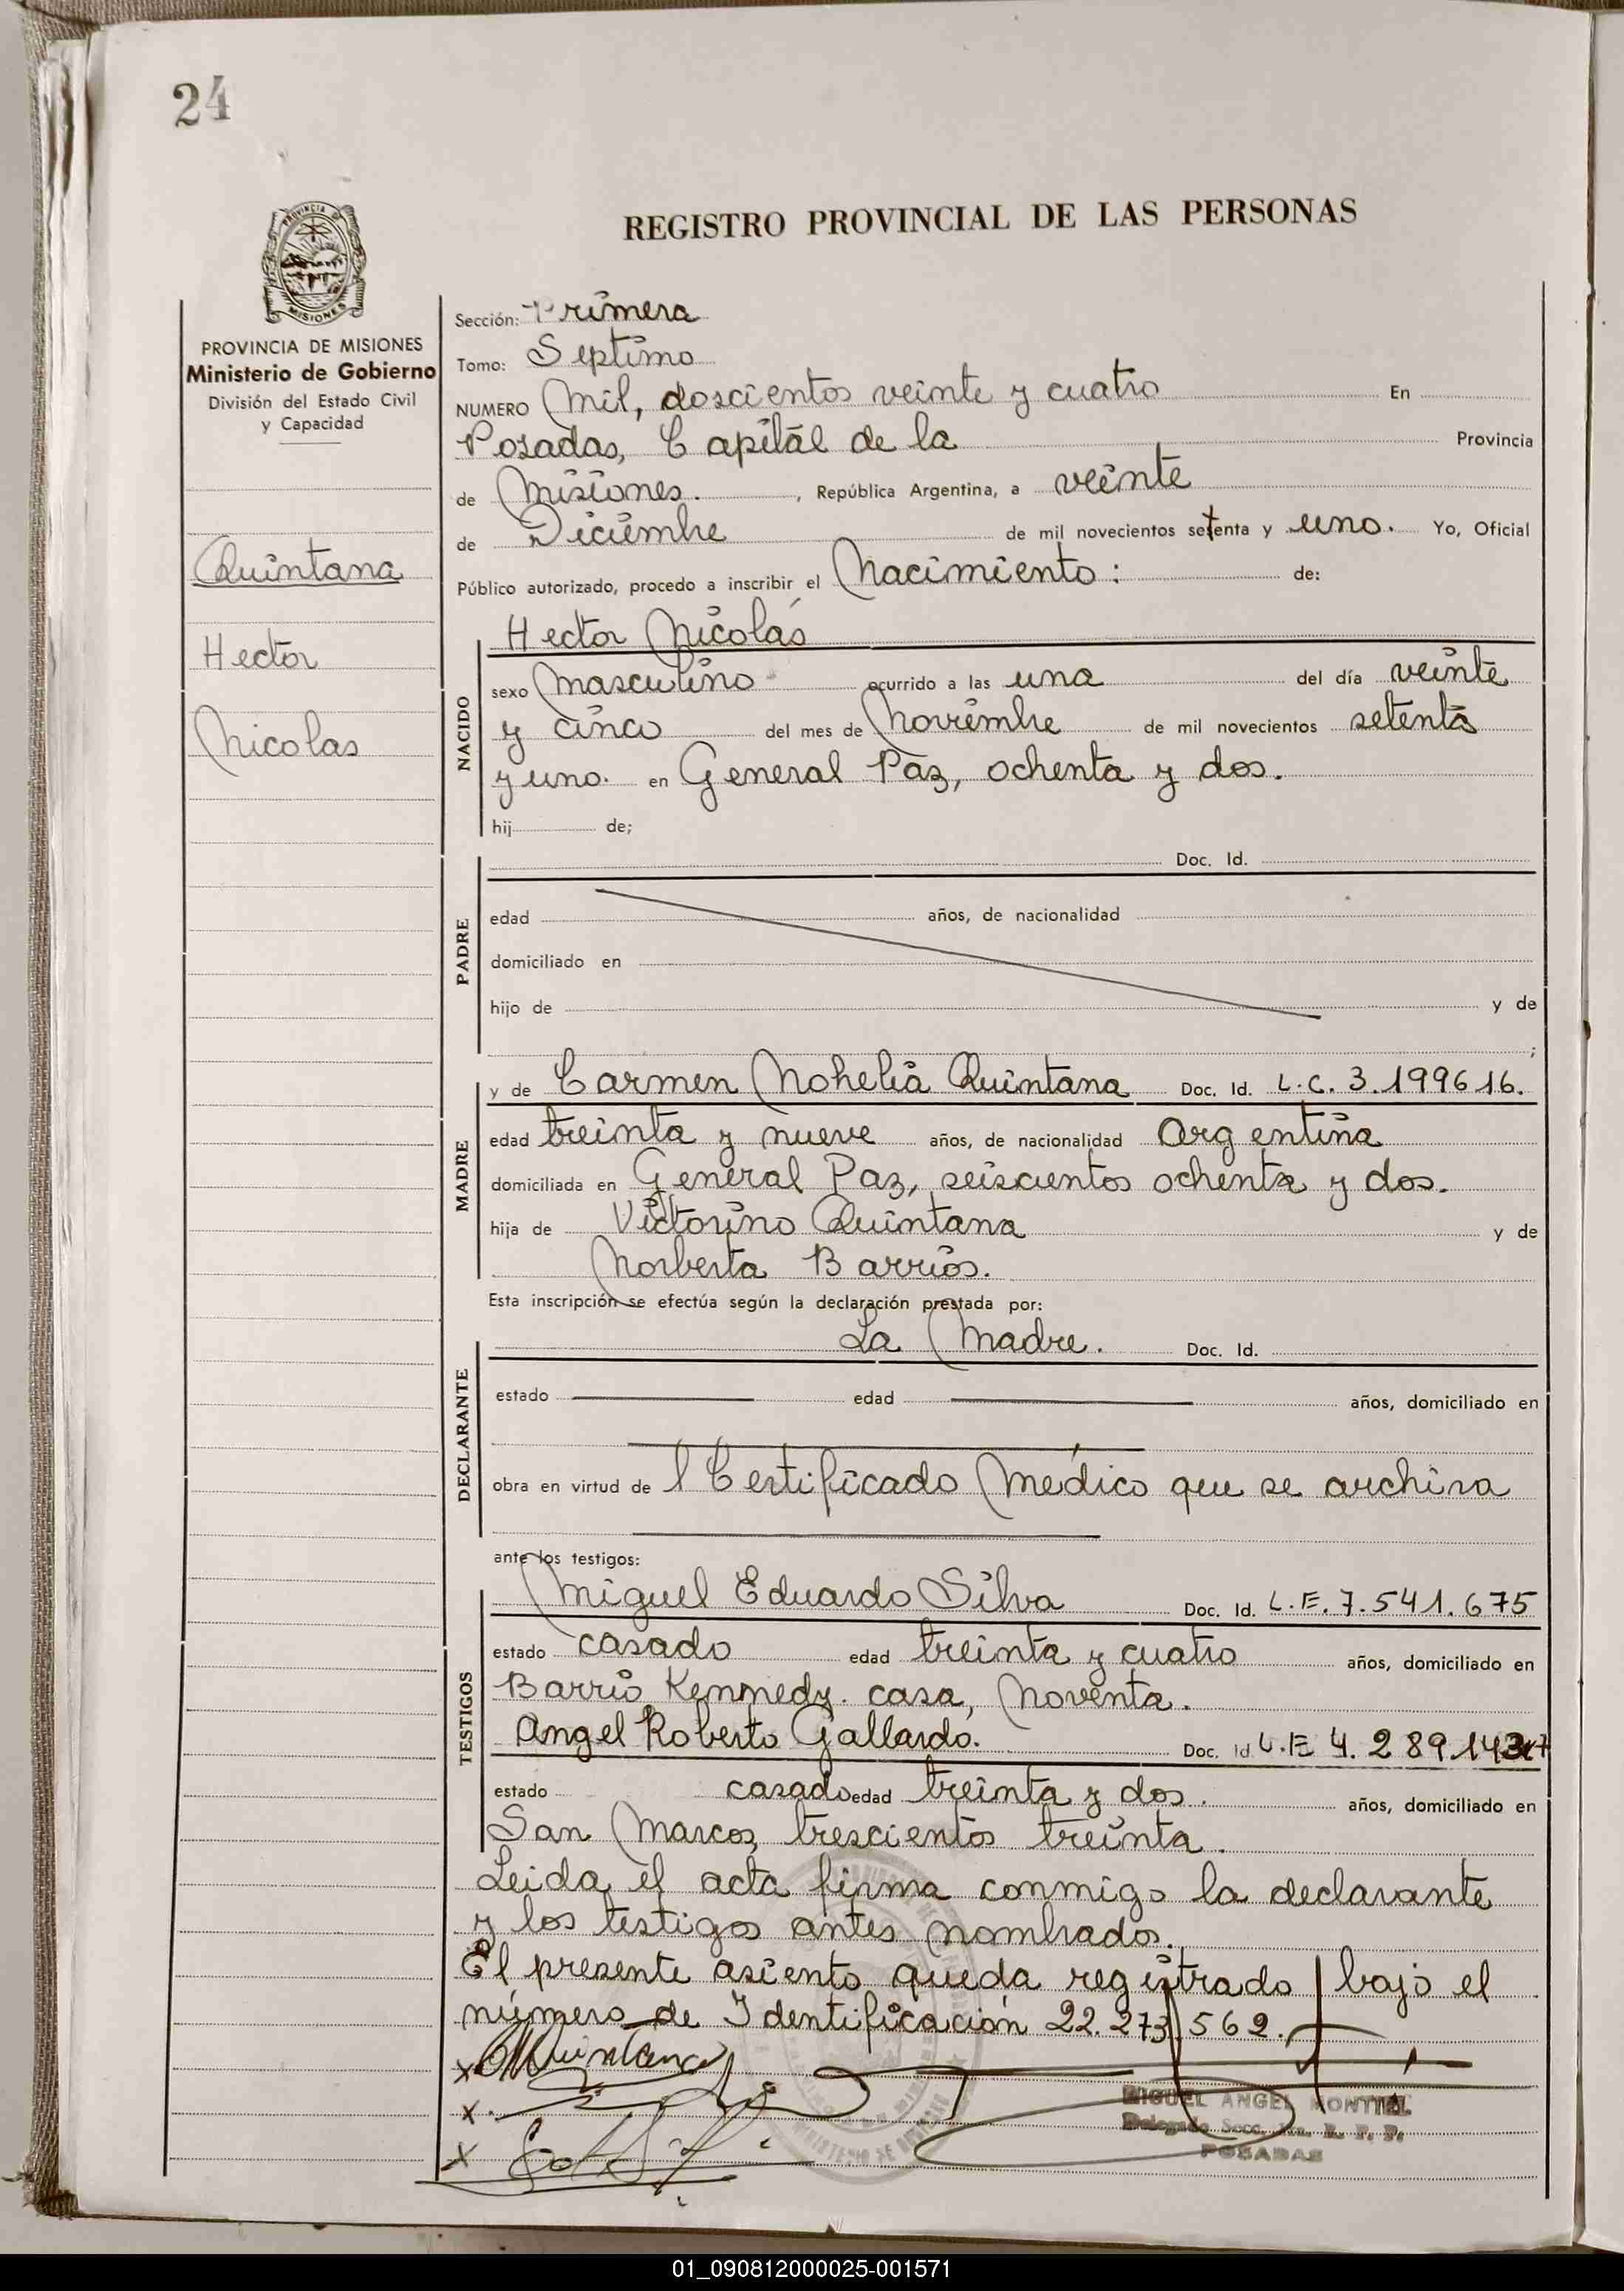 24
REGISTRO PROVINCIAL DE LAS PERSONAS
PROVINCIA DE MISIONES
MISIONES
PROVINCIA DE MISIONES
Ministerio de Gobierno
División del Estado Civil
y Capacidad
Quintana
Hector
Nicolas
Sección: Primera
Tomo: Septimo
NUMERO Mil, doscientos veinte y cuatro En
Posadas, Capital de la Provincia
de Misiones. , República Argentina, a veinte
de Diciembre de mil novecientos setenta y uno. Yo, Oficial
Público autorizado, procedo a inscribir el Nacimiento: de:
NACIDO
Hector Nicolás
sexo Masculino ocurrido a las una del día veinte
y cinco del mes de Noviembre de mil novecientos setenta
y uno. en General Paz, ochenta y dos.
hij de;
PADRE
Doc. Id.
edad años, de nacionalidad
domiciliado en
hijo de y de
;
MADRE
y de Carmen Nohelia Quintana Doc. Id. L.C. 3.199616.
edad treinta y nueve años, de nacionalidad Argentina
domiciliada en General Paz, seiscientos ochenta y dos.
hija de Victorino Quintana y de
Norberta Barrios.
Esta inscripción se efectúa según la declaración prestada por:
DECLARANTE
La Madre. Doc. Id.
estado edad años, domiciliado en
obra en virtud de l Certificado Médico que se archiva
ante los testigos:
TESTIGOS
Miguel Eduardo Silva Doc. Id. L.E. 7.541.675
estado casado edad treinta y cuatro años, domiciliado en
Barrio Kennedy. casa, Noventa.
Angel Roberto Gallardo. Doc. Id. L.E 4.289.143
estado casado edad treinta y dos. años, domiciliado en
San Marcos, trescientos treinta.
Leida el acta firma conmigo la declarante
y los testigos antes nombrados.
El presente asiento queda registrado bajo el
número de Identificación 22.273.562.
x CNQuintana
x
x
MIGUEL ANGEL MONTIEL
Delegado Secc. 1ra. R. P. P.
POSADAS
01_090812000025-001571